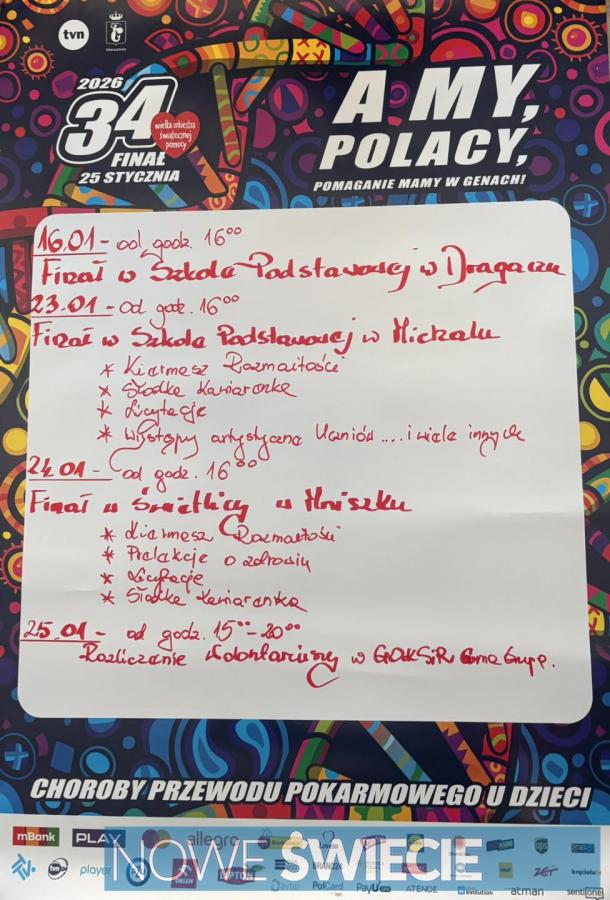 tvn
2026
34
wielka orkiestra
świątecznej
pomocy
FINAŁ
25 STYCZNIA
A MY,
POLACY,
POMAGANIE MAMY W GENACH!
16.01 - od godz. 16⁰⁰
Finał w Szkole Podstawowej w Dragaczu
23.01 - od godz. 16⁰⁰
Finał w Szkole Podstawowej w Michalu
* Kiermesz Rozmaitości
* Słodka Kawiarenka
* Licytacje
* Występy artystyczne Uczniów .... i wiele innych
24.01 - od godz. 16⁰⁰
Finał w Świetlicy w Mniszku
* Kiermesz Rozmaitości
* Prelekcje o zdrowiu
* Licytacje
* Słodka Kawiarenka
25.01 - od godz. 15⁰⁰ - 20⁰⁰
Rozliczenie Wolontariuszy w GOKSiR Górna Grupa.
CHOROBY PRZEWODU POKARMOWEGO U DZIECI
mBank PLAY allegro ups
player ORLEN LOTTO BRAND24 ZET kręcioła
NOWE ŚWIECIE
PolCard PayU ATENDE evolution atman sentione